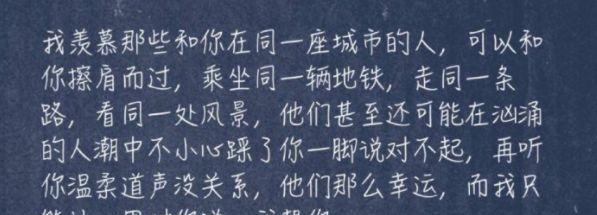 我羡慕那些和你在同一座城市的人，可以和
你擦肩而过，乘坐同一辆地铁，走同一条
路，看同一处风景，他们甚至还可能在汹涌
的人潮中不小心踩了你一脚说对不起，再听
你温柔道声没关系，他们那么幸运，而我只